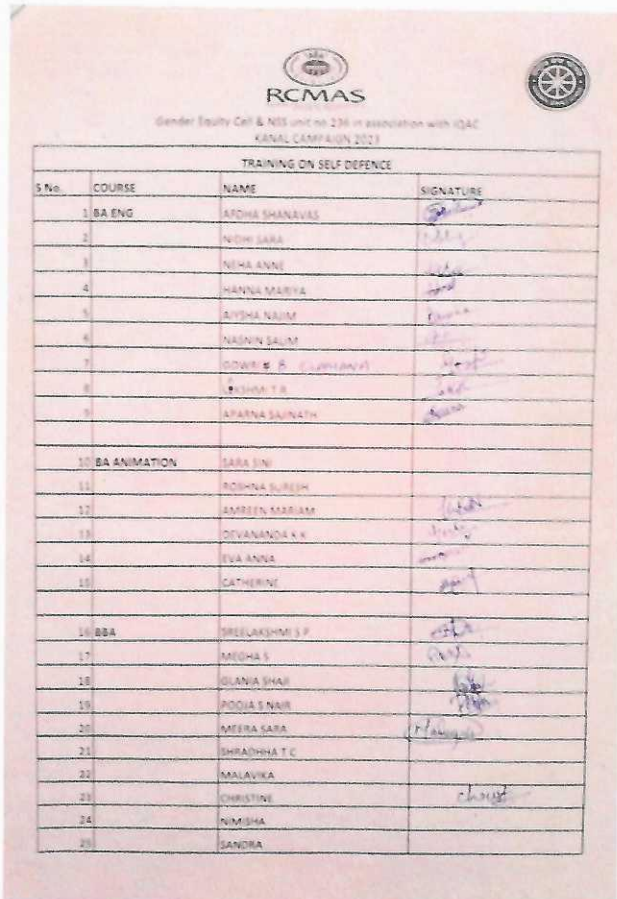 RCMAS
Gender Equity Cell & NSS unit no 236 in association with IQAC
KANAL CAMPAIGN 2023
TRAINING ON SELF DEFENCE
S No. COURSE NAME SIGNATURE
1 BA ENG AFDHA SHANAVAS
2 NIDHI SARA
3 NEHA ANNE
4 HANNA MARIYA
5 AIYSHA NAJIM
6 NASNIN SALIM
7 GOWRI B
8 LAKSHMI T R
9 APARNA SAJINATH
10 BA ANIMATION SARA SINI
11 ROSHNA SURESH
12 AMREEN MARIAM
13 DEVANANDA K K
14 EVA ANNA
15 CATHERINE
16 BBA SREELAKSHMI S P
17 MEGHA S
18 GLANIA SHAJI
19 POOJA S NAIR
20 MEERA SARA
21 SHRADHHA T C
22 MALAVIKA
23 CHRISTINE
24 NIMISHA
25 SANDRA